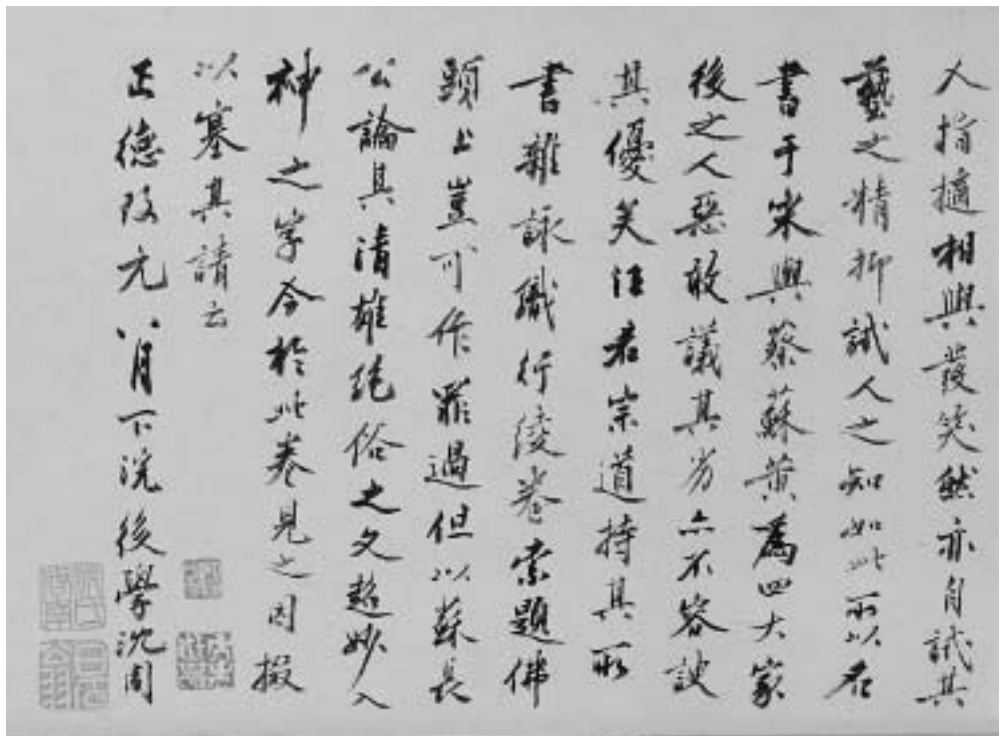 人指擿相與發笑然亦自試其
藝之精抑試人之知如此所以名
書于宋與蔡蘇黃為四大家
後之人惡敢議其劣亦不容諛
其優矣汪君宗道持其所
書雜詠織行綾卷索題佛
頭上豈可作罪過但以蘇長
公論其清雄絕俗之文超妙入
神之字今於此卷見之因掇
以塞其請云
正德改元八月下浣後學沈周